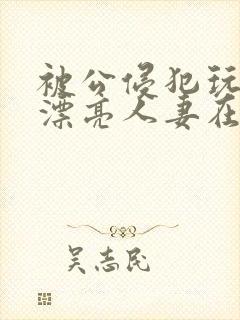 被公侵犯玩
漂亮人妻在
吴志民